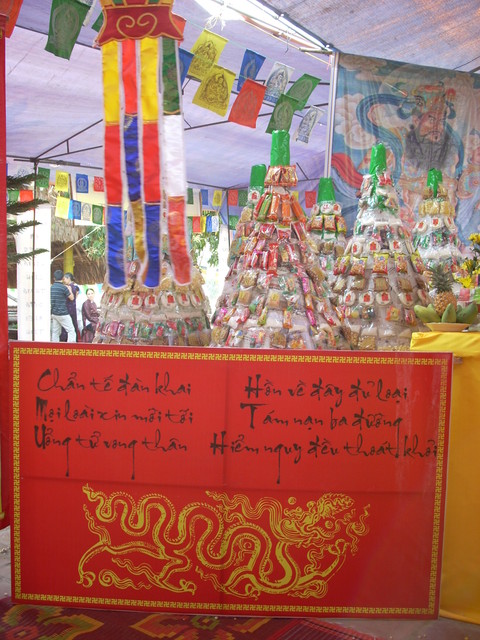 Chẩn tế đàn khai
Mọi loài xin mời tới
Uổng tử vong thân
Hồn về đây đủ loại
Tám nạn ba đường
Hiểm nguy đều thoát khỏi